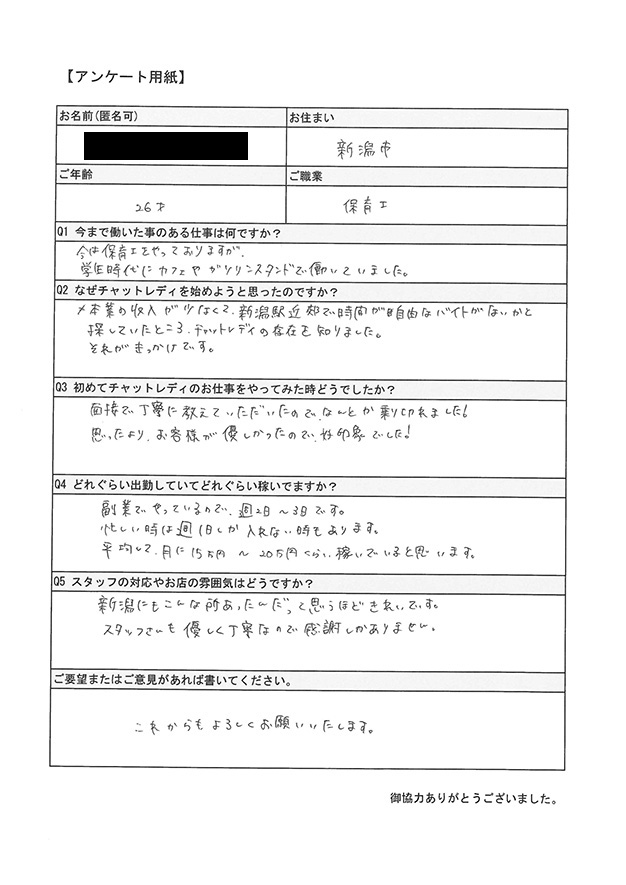 【アンケート用紙】
お名前(匿名可)
お住まい
新潟市
ご年齢
ご職業
26才
保育士
Q1 今まで働いた事のある仕事は何ですか？
今は保育士をやっておりますが、
学生時代にカフェやガソリンスタンドで働いていました。
Q2 なぜチャットレディを始めようと思ったのですか？
本業の収入が少なくて、新潟駅近郊で時間が自由なバイトがないかと
探していたところ、チャットレディの存在を知りました。
それがきっかけです。
Q3 初めてチャットレディのお仕事をやってみた時どうでしたか？
面接で丁寧に教えていただいたので、なんとか乗り切れました!
思ったより、お客様が優しかったので、好印象でした!
Q4 どれぐらい出勤していてどれぐらい稼いでますか？
副業でやっているので、週2日～3日です。
忙しい時は週1日しか入れない時もあります。
平均して、月に15万円～20万円くらい稼いでいると思います。
Q5 スタッフの対応やお店の雰囲気はどうですか？
新潟にもこんな所あったんだって思うほどきれいです。
スタッフさんも優しく丁寧なので感謝しかありません。
ご要望またはご意見があれば書いてください。
これからもよろしくお願いいたします。
御協力ありがとうございました。